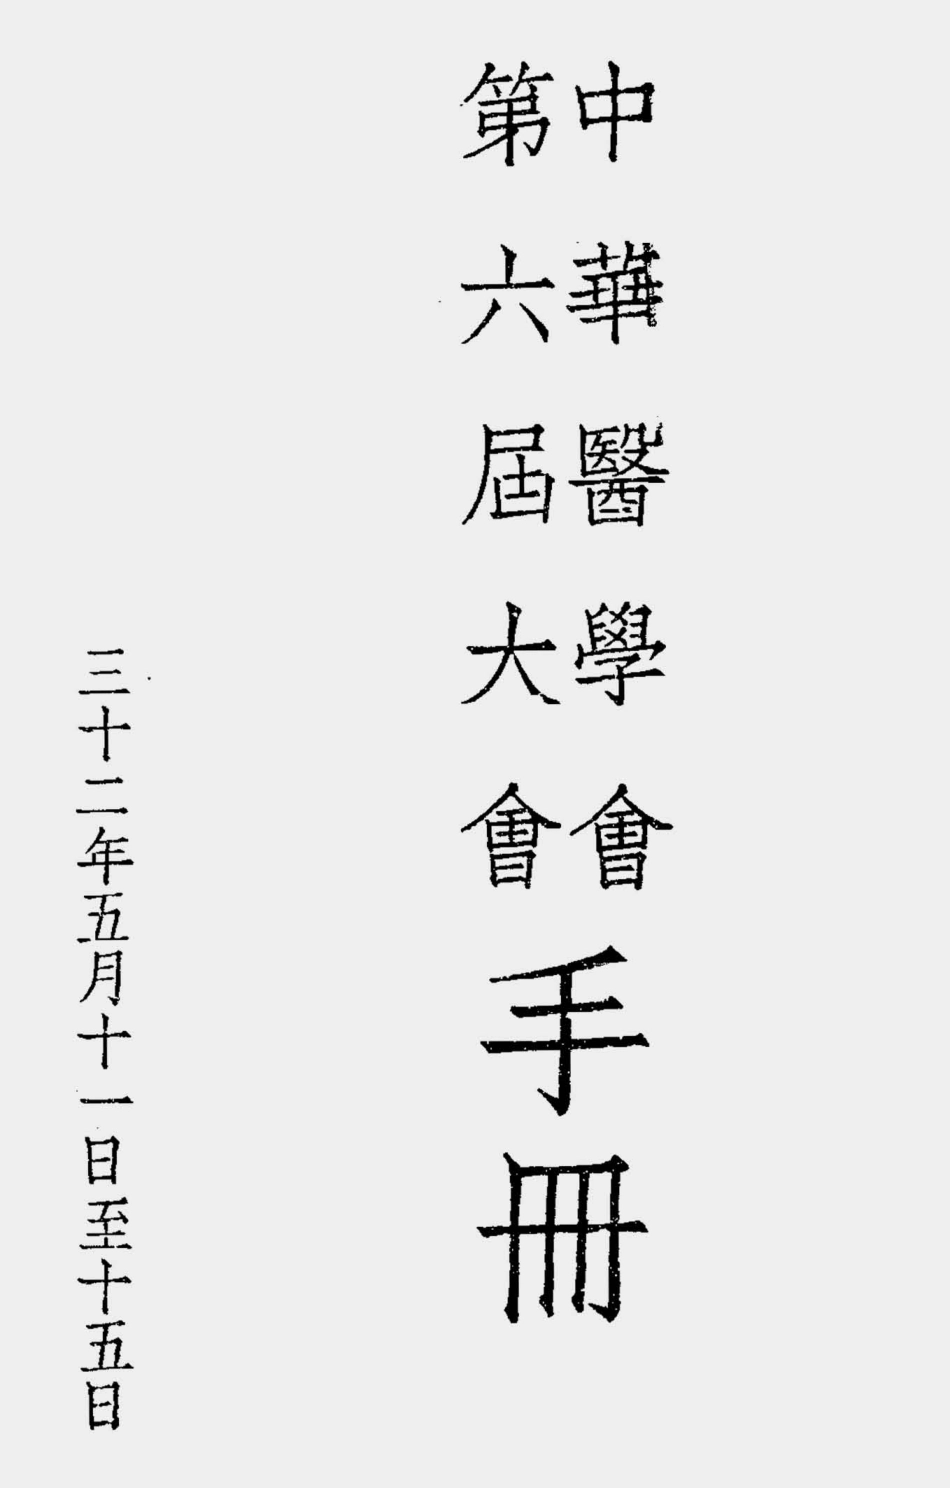 中華醫學會
第六屆大會
手冊
三十二年五月十一日至十五日